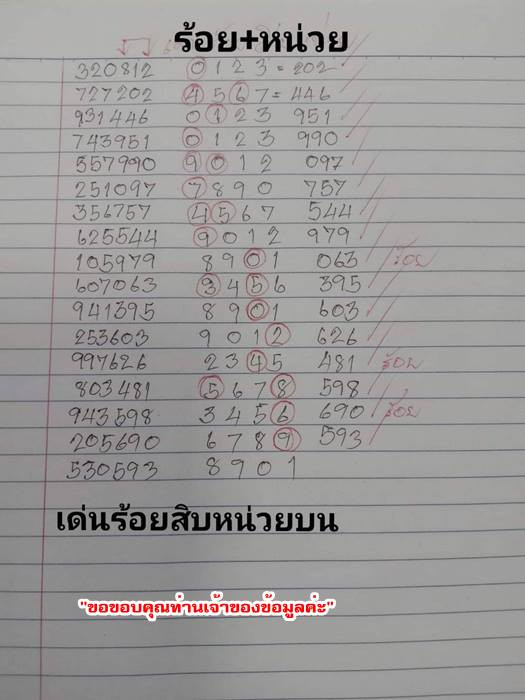 ร้อย+หน่วย
320812 0 1 2 3 = 202
727202 4 5 6 7 = 446
931446 0 1 2 3 951
743951 0 1 2 3 990
557990 9 0 1 2 097
251097 7 8 9 0 757
356757 4 5 6 7 544
625544 9 0 1 2 979
105979 8 9 0 1 063 ร้อย
607063 3 4 5 6 395
941395 8 9 0 1 603
253603 9 0 1 2 626
997626 2 3 4 5 481 ร้อย
803481 5 6 7 8 598
943598 3 4 5 6 690 ร้อย
205690 6 7 8 9 593
530593 8 9 0 1
เด่นร้อยสิบหน่วยบน
"ขอขอบคุณท่านเจ้าของข้อมูลค่ะ"